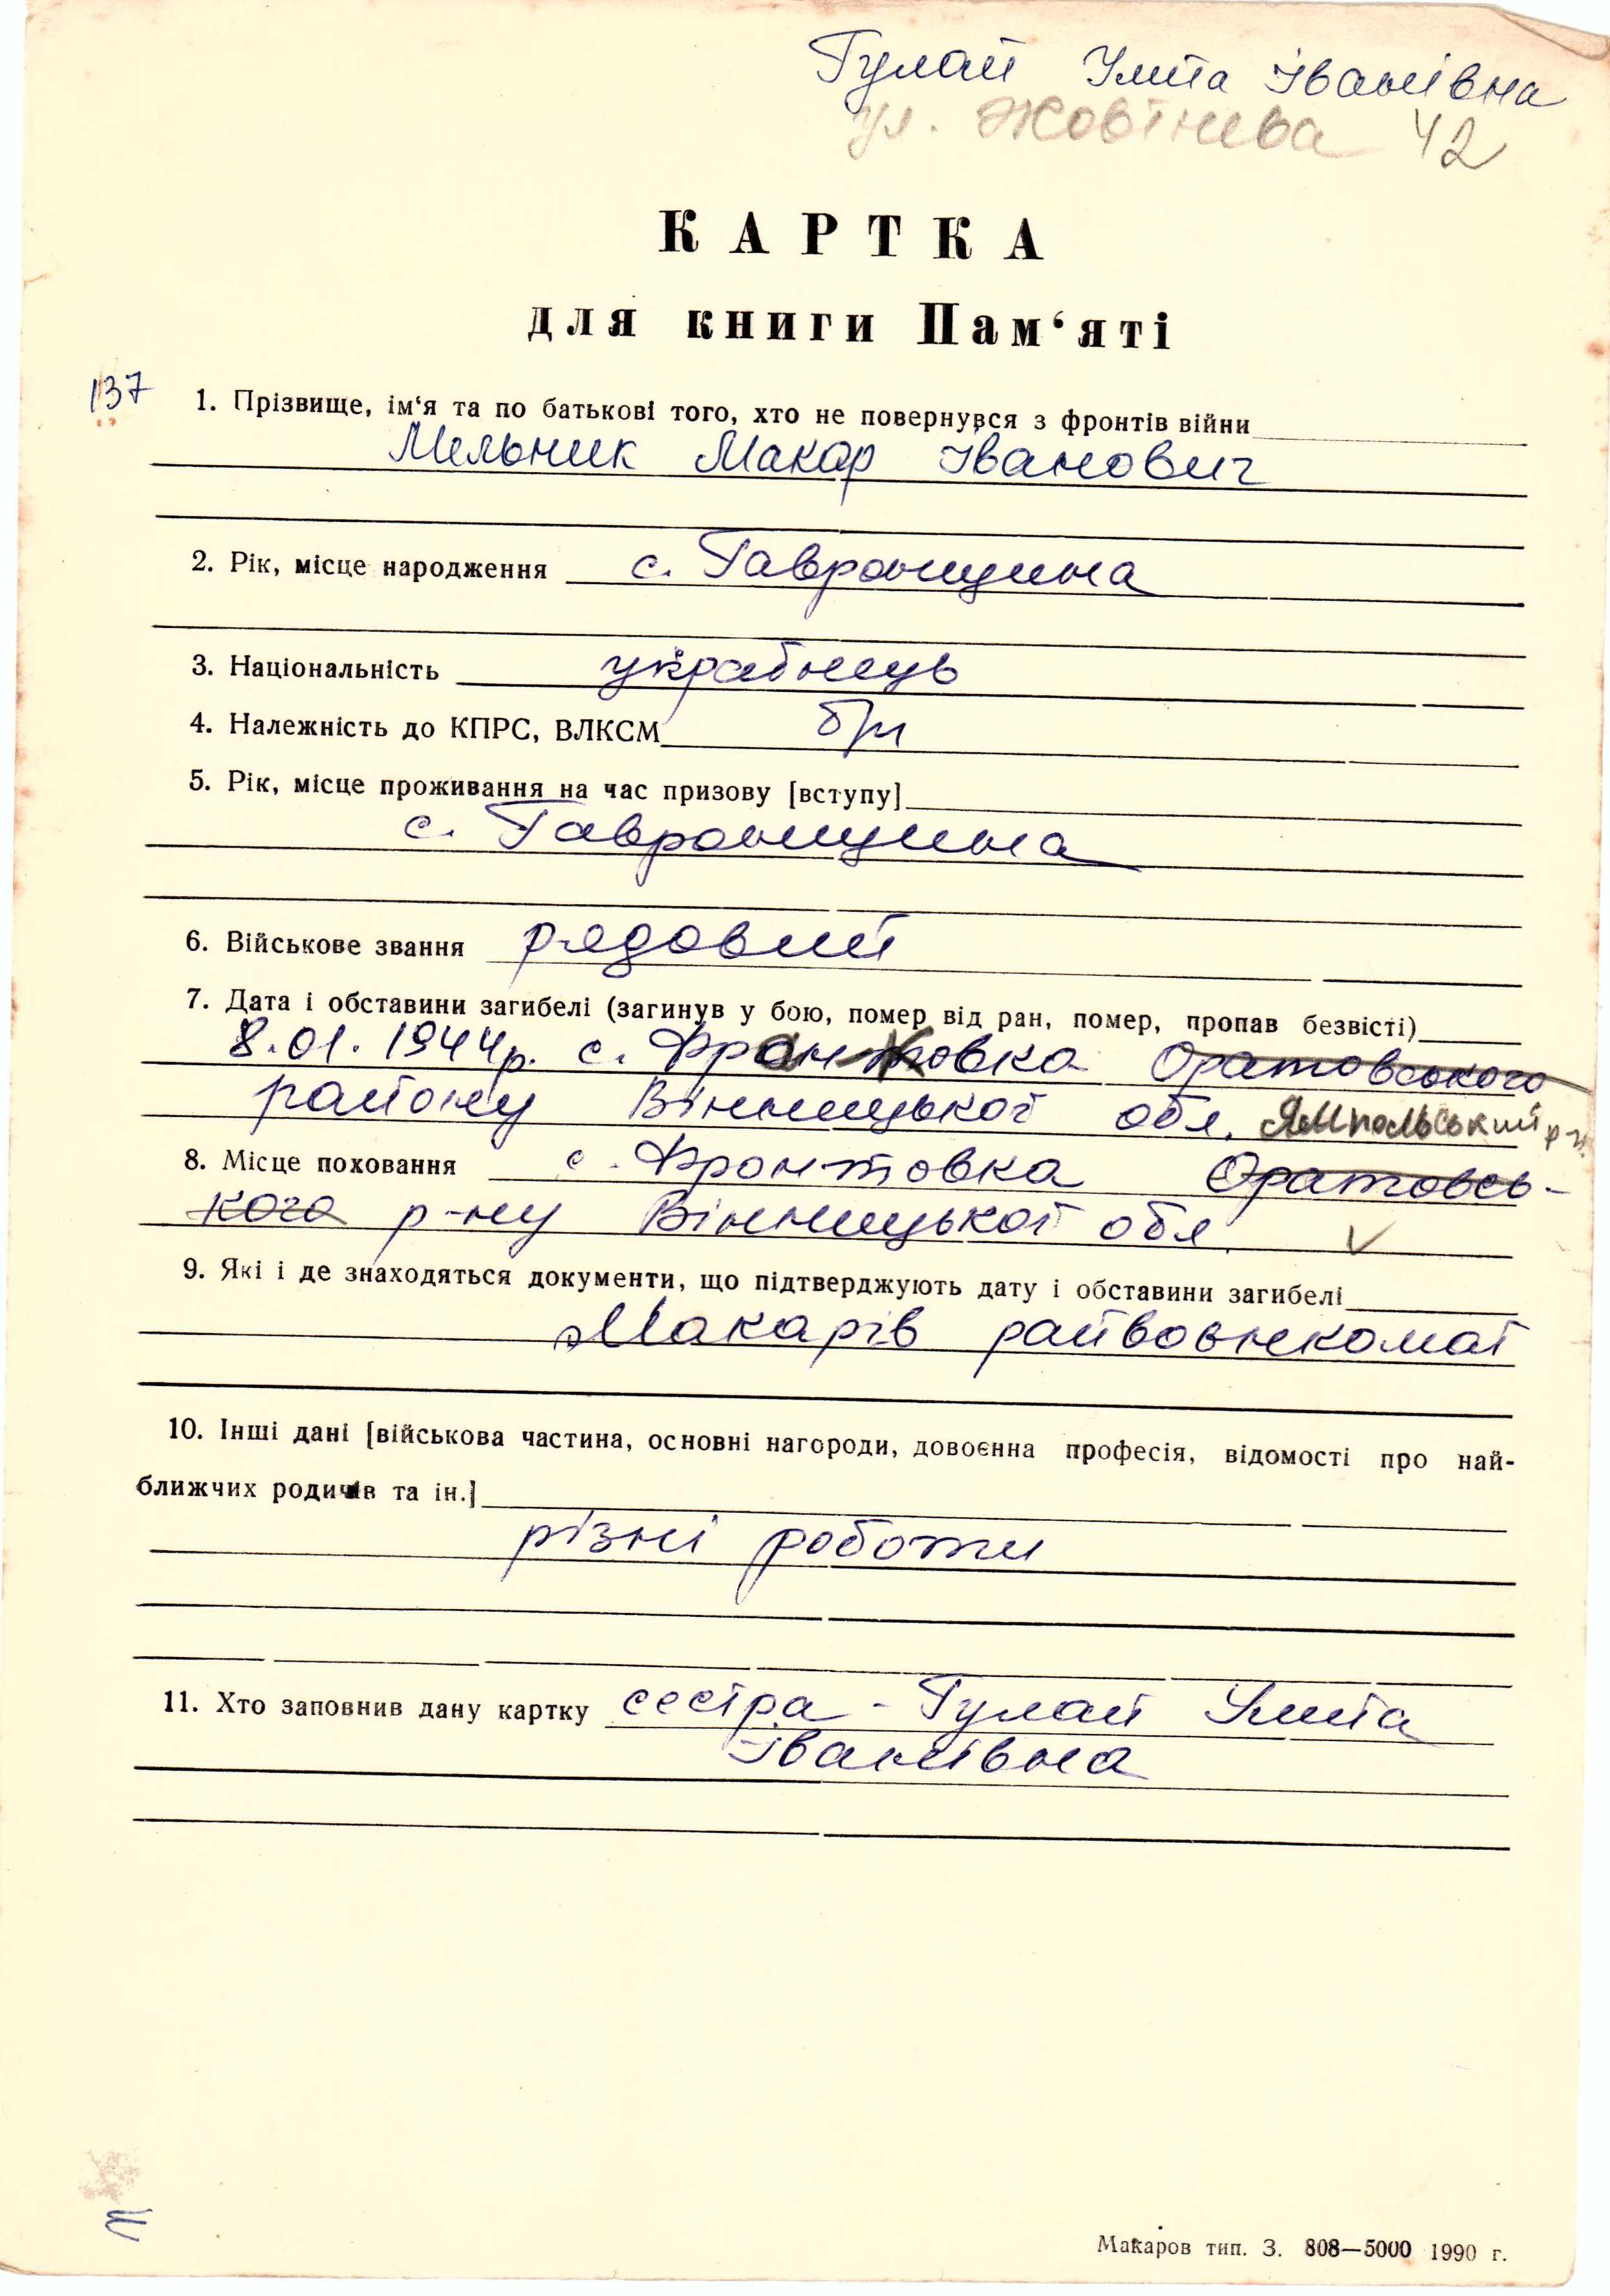 Гулай Улита Іванівна
ул. Жовтнева 42
КАРТКА
для книги Пам‘яті
137
1. Прізвище, ім‘я та по батькові того, хто не повернувся з фронтів війни
Мельник Макар Іванович
2. Рік, місце народження с. Гавронщина
3. Національність українець
4. Належність до КПРС, ВЛКСМ б/п
5. Рік, місце проживання на час призову [вступу]
с. Гавронщина
6. Військове звання рядовий
7. Дата і обставини загибелі (загинув у бою, помер від ран, помер, пропав безвісті)
8.01.1944р. с. Оратовського
району Вінницької обл. Ямпольський р-н.
8. Місце поховання с. Фронтовка Оратовсь-
кого р-ну Вінницької обл.
9. Які і де знаходяться документи, що підтверджують дату і обставини загибелі
Макарів райвоєнкомат
10. Інші дані [військова частина, основні нагороди, довоєнна професія, відомості про най-
ближчих родичів та ін.]
різні роботи
11. Хто заповнив дану картку сестра - Гулай Улита
Іванівна
Макаров тип. З. 808—5000 1990 г.